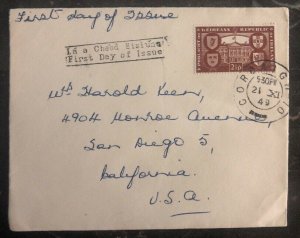 First day of Issue
Lá a Chéad Eisiúna
First Day of Issue
REPUBLIC
2½p
CORCAIGH
9 30PM
21 XI
49
Mr Harold Keen,
4904 Monroe Avenue,
San Diego 5,
California.
U.S.A.